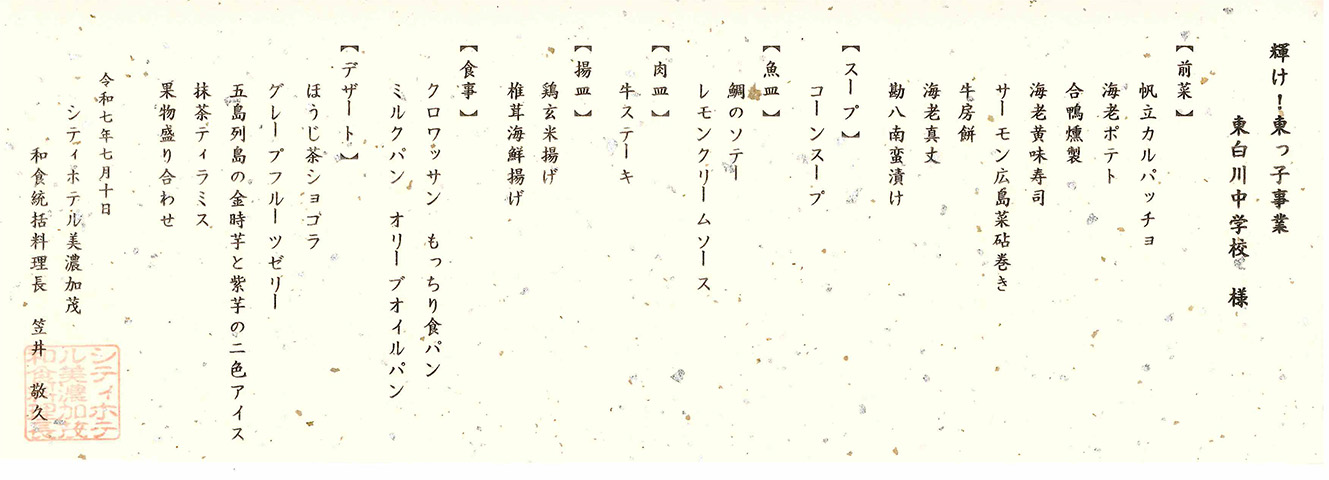 輝け！東っ子事業
東白川中学校　様
【前菜】
帆立カルパッチョ
海老ポテト
合鴨燻製
海老黄味寿司
サーモン広島菜砧巻き
牛房餅
海老真丈
勘八南蛮漬け
【スープ】
コーンスープ
【魚皿】
鯛のソテー
レモンクリームソース
【肉皿】
牛ステーキ
【揚皿】
鶏玄米揚げ
椎茸海鮮揚げ
【食事】
クロワッサン　もっちり食パン
ミルクパン　オリーブオイルパン
【デザート】
ほうじ茶ショコラ
グレープフルーツゼリー
五島列島の金時芋と紫芋の二色アイス
抹茶ティラミス
果物盛り合わせ
令和七年七月十日
シティホテル美濃加茂
和食統括料理長　笠井　敬久
シティホテ
ル美濃加茂
和食料理長